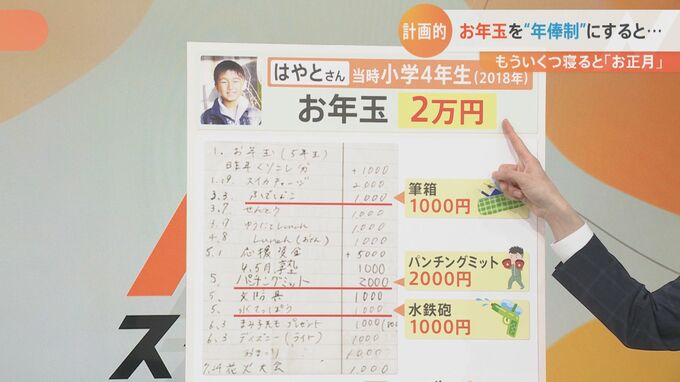 計画的
お年玉を“年俸制”にすると…
もういくつ寝ると「お正月」
はやとさん 当時小学4年生(2018年)
お年玉 2万円
1. お年玉(5年生)
昨年くりこし分 +1000
1.19 スイカチャージ 2000
3.3 ふでばこ 1000
3.7 せんとう 1000
3.9 lunch 1000
4.8 Lunch 1000
5.1 応援資金 +5000
4.5月塾 1000
5. パチングミット 2000
5. 文防具 1000
5. 水てっぽう 1000
6.3 まみ子先生プレゼント 1000
6.3 ディズニー(ライト) 1000
おまつり 1000
7.24 花火大会 1000
筆箱
1000円
パンチングミット
2000円
水鉄砲
1000円
ス